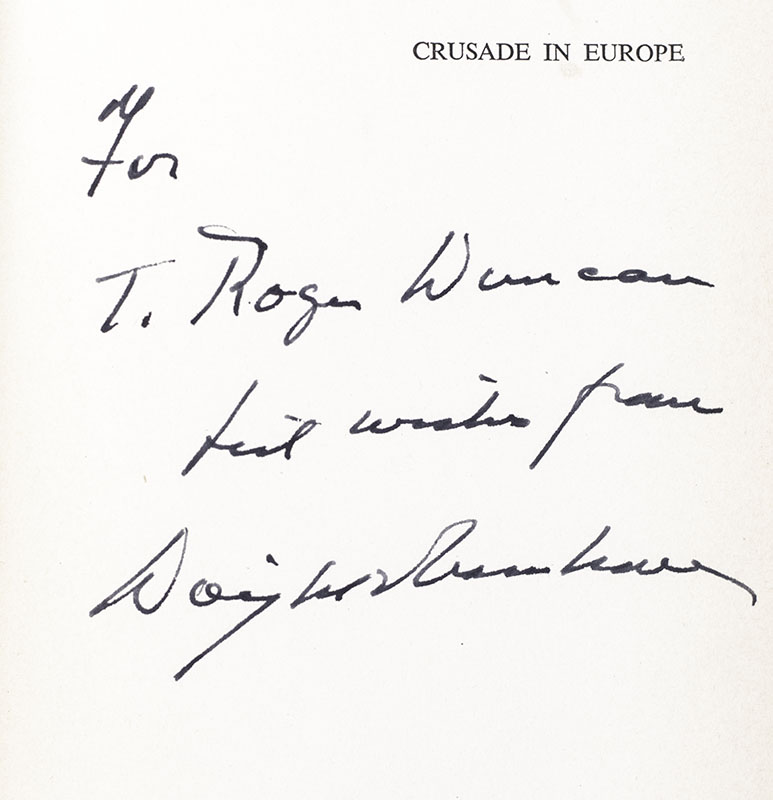 CRUSADE IN EUROPE
For
T. Roger Duncan
best wishes from
Dwight D Eisenhower